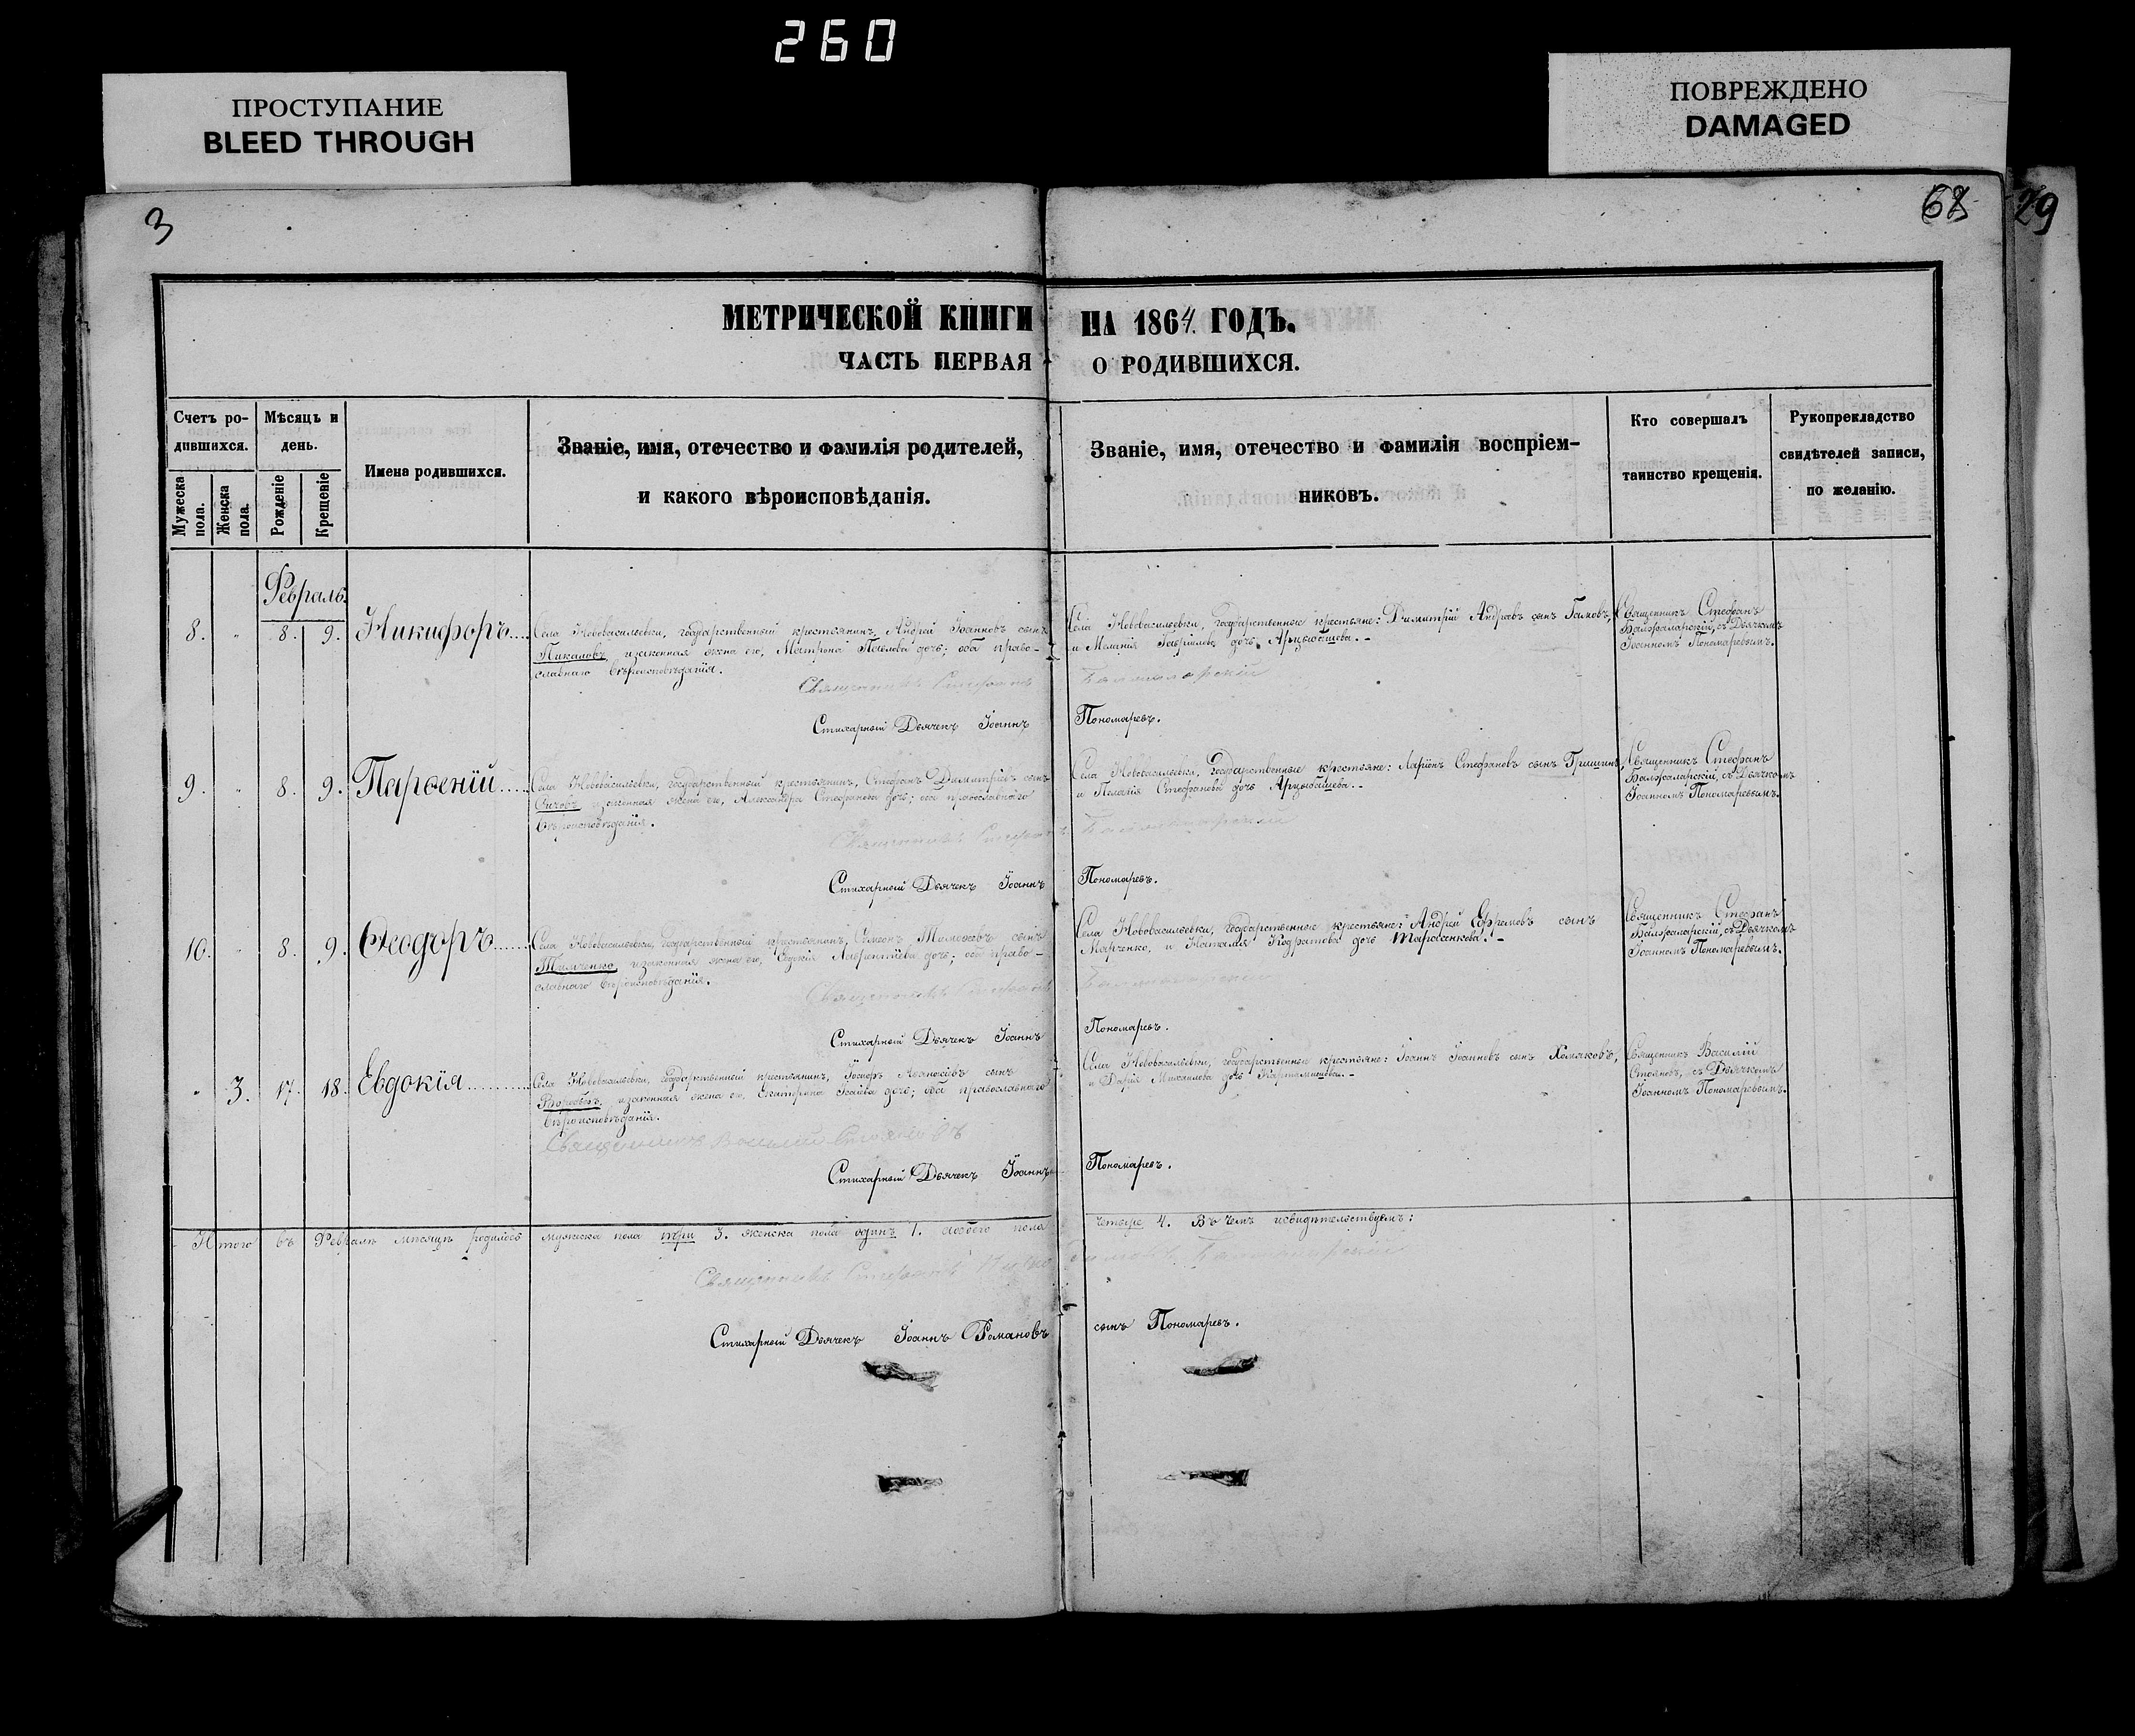 260
ПРОСТУПАНИЕ
BLEED THROUGH
ПОВРЕЖДЕНО
DAMAGED
3
29
МЕТРИЧЕСКОЙ КНИГИ НА 1864. ГОДЪ.
ЧАСТЬ ПЕРВАЯ О РОДИВШИХСЯ.
Счетъ ро-
дившихся.
Мужеска пола.
Женска пола.
Мѣсяцъ и
день.
Рожденіе
Крещеніе
Имена родившихся.
Званіе, имя, отечество и фамилія родителей,
и какого вѣроисповѣданія.
Званіе, имя, отечество и фамилія воспріем-
никовъ.
Кто совершалъ
таинство крещенія.
Рукоприкладство
свидѣтелей записи,
по желанію.
Февраль.
8. " 8. 9. Никифоръ....
Села Нововасильевки, государственный крестьянинъ, Андрей Іоанновъ сынъ
Пикаловъ, и законная жена его, Матрона Павлова дочь; оба право-
славнаго вѣроисповѣданія.
Села Нововасильевки, государственные крестьяне: Димитрій сынъ
и Меланія Гавріилова дочь Арцыбашева.-
Священникъ Стефанъ
съ Дьячкомъ
Іоанномъ Пономаревымъ.
Священникъ Стефанъ
Стихарный Дьячекъ Іоаннъ Пономаревъ.
9. " 8. 9. Парѳеній.....
Села Нововасильевки, государственный крестьянинъ, Стефанъ Димитріевъ сынъ
и законная жена его, Александра Стефанова дочь; оба православнаго
вѣроисповѣданія.
Села Нововасильевки, государственные крестьяне: Ларіонъ Стефановъ сынъ Гришинъ,
и Пелагія Стефанова дочь Арцыбашева.-
Священникъ Стефанъ
съ Дьячкомъ
Іоанномъ Пономаревымъ.
Священникъ Стефанъ
Стихарный Дьячекъ Іоаннъ Пономаревъ.
10. " 8. 9. Ѳеодоръ......
Села Нововасильевки, государственный крестьянинъ, Симеонъ сынъ
Тимченко, и законная жена его, Евдокія Лаврентіева дочь; оба право-
славнаго вѣроисповѣданія.
Села Нововасильевки, государственные крестьяне: Андрей Ефремовъ сынъ
Марченко, и Наталія Кодратова дочь Тарасенкова.-
Священникъ Стефанъ
съ Дьячкомъ
Іоанномъ Пономаревымъ.
Священникъ Стефанъ
Стихарный Дьячекъ Іоаннъ Пономаревъ.
" 3. 17. 18. Евдокія..........
Села Нововасильевки, государственный крестьянинъ, Іосифъ Аѳанасіевъ сынъ
и законная жена его, Екатерина Исаіева дочь; оба православнаго
вѣроисповѣданія.
Села Нововасильевки, государственные крестьяне: Іоаннъ Іоанновъ сынъ Хомяковъ,
и Дарія Михаилова дочь
Священникъ Василій
Стояновъ, съ Дьячкомъ
Іоанномъ Пономаревымъ.
Священникъ Василій Стояновъ
Стихарный Дьячекъ Іоаннъ Пономаревъ.
Итого въ Февралѣ мѣсяцѣ родилось мужеска пола три 3. женска пола одинъ 1. обоего пола четыре 4. Въ чемъ и свидѣтельствуемъ:
Священникъ Стефанъ
Стихарный Дьячекъ Іоаннъ Романовъ сынъ Пономаревъ.